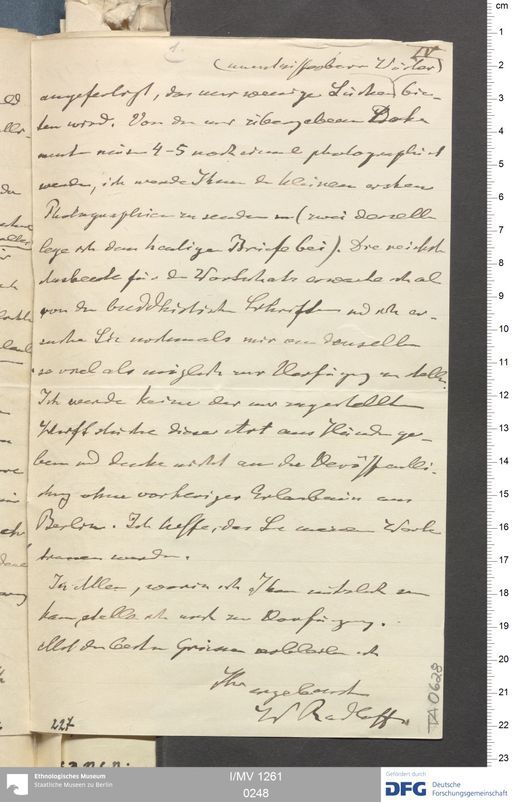 1.
IV
(unentzifferbare Wörter)
angefertigt, das nur wenige Lücken bie-
ten wird. Von den mir übergebenen
müssen 4-5 noch einmal photographirt
werden, ich werde Ihnen die kleinen ersten
Photographien zu senden (zwei derselben
lege ich dem heutigen Briefe bei). Die reichste
Ausbeute für den Wortschatz erwarte ich
von den buddhistischen Schriften und ich er-
suche Sie nochmals mir von denselben
so viel als möglich zur Verfügung zu stellen.
Ich werde keine der mir zugestellten
dieser Art aus Händen ge-
ben und denke nicht an die Veröffentli-
chung ohne vorherige Erlaubniss aus
Berlin. Ich hoffe, das Sie meinem Worte
trauen werden.
In Allem, worin ich Ihnen nützlich sein
kann, stelle ich mich zur Verfügung.
Mit den besten Grüssen verbleibe ich
Ihr
ergebenster
W Radloff
227
TA 0628
Ethnologisches Museum
Staatliche Museen zu Berlin
I/MV 1261
0248
Gefördert durch
DFG Deutsche
Forschungsgemeinschaft
cm
1
2
3
4
5
6
7
8
9
10
11
12
13
14
15
16
17
18
19
20
21
22
23